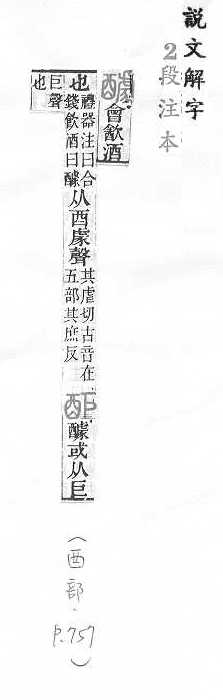 說文解字
2段注本
醵會飲酒
也
禮器注曰合
錢飲酒曰醵
从酉豦聲
其虐切古音在
五部其庶反
䣰醵或从巨
巨聲
也
(酉部.
P.757)